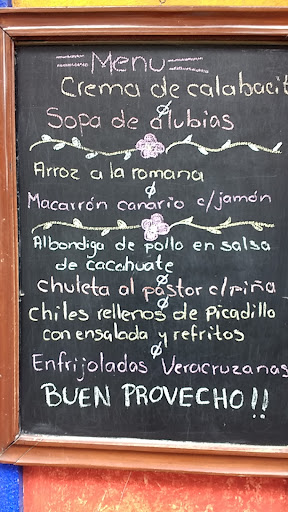 Menu
Crema de calabacit
Sopa de alubias
Arroz a la romana
Macarrón canario c/jamón
Albondiga de pollo en salsa
de cacahuate
chuleta al pastor c/piña
chiles rellenos de Picadillo
con ensalada y refritos
Enfrijoladas Veracruzanas
BUEN PROVECHO!!